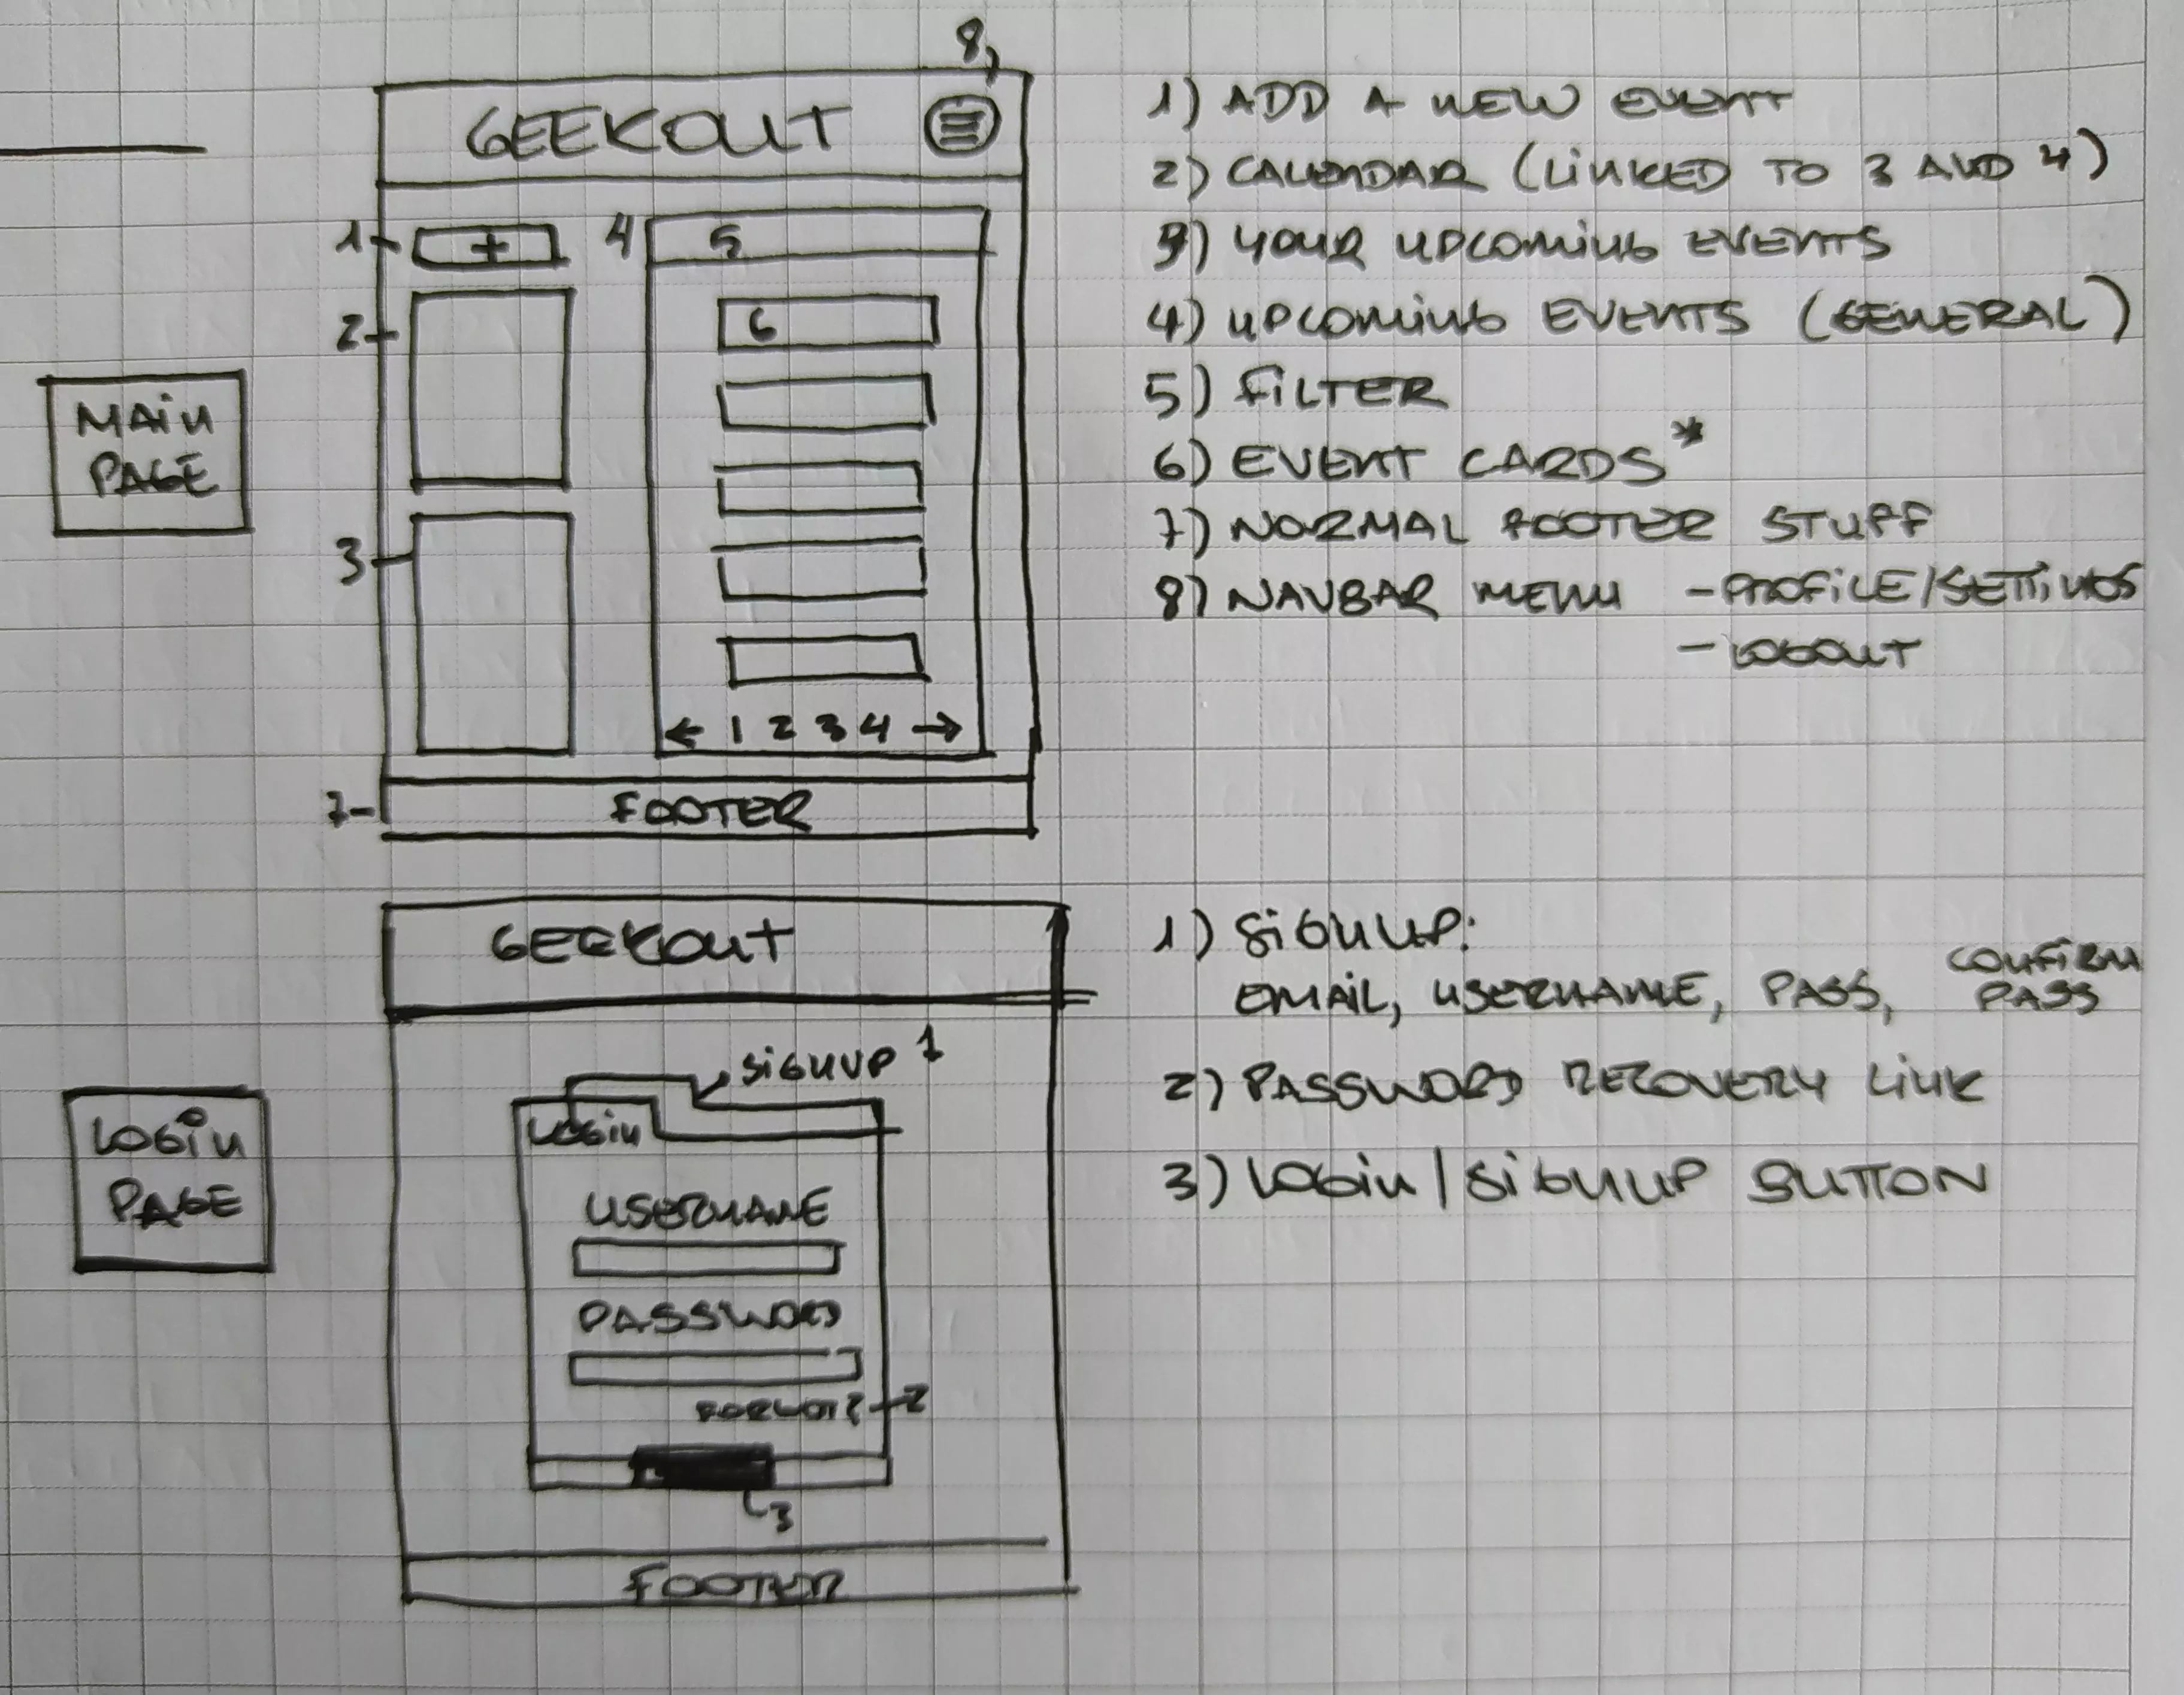 8)
GEEKOUT
1
+
4
5
2
6
3
← 1 2 3 4 →
7
FOOTER
MAIN
PAGE
1) ADD A NEW EVENT
2) CALENDAR (LINKED TO 3 AND 4)
3) YOUR UPCOMING EVENTS
4) UPCOMING EVENTS (GENERAL)
5) FILTER
6) EVENT CARDS*
7) NORMAL FOOTER STUFF
8) NAVBAR MENU - PROFILE/SETTINGS
- LOGOUT
GEEKOUT
SIGNUP 1
LOGIN
USERNAME
PASSWORD
FORGOT? 2
3
FOOTER
LOGIN
PAGE
1) SIGNUP:
EMAIL, USERNAME, PASS, CONFIRM
PASS
2) PASSWORD RECOVERY LINK
3) LOGIN/SIGNUP BUTTON